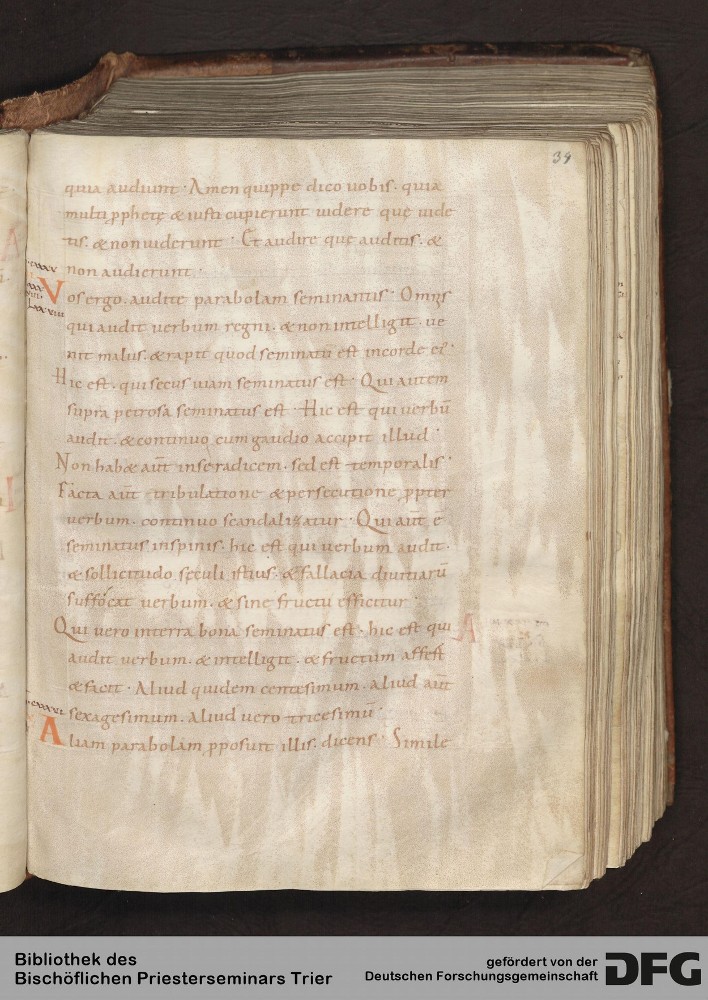 39
quia audiunt · Amen quippe dico uobis · quia
multi ꝓphetę & iusti cupierunt uidere quę uide
tis · & non uiderunt · Et audire quę auditis · &
non audierunt ·
Vos ergo · audite parabolam seminantis · Omīs
qui audit uerbum regni · & non intelligit · ue
nit malus · & rapit quod seminatū est in corde ei᾽ ·
Hic est · qui secus uiam seminatus est · Qui autem
supra petrosa seminatus est · Hic est qui uerbū
audit · & continuo cum gaudio accipit illud ·
Non hab& aūt in se radicem · sed est temporalis ·
Facta aūt tribulatione & persecutione ꝓpter
uerbum · continuo scandalizatur · Qui aūt ē
seminatus in spinis · hic est qui uerbum audit ·
& sollicitudo sęculi istius · & fallacia diuitiarū
suffocat uerbum · & sine fructu efficitur ·
Qui uero in terra bona seminatus est · hic est qui
audit uerbum · & intelligit · & fructum affert
& facit · Aliud quidem centesimum · aliud aūt
sexagesimum · aliud uero tricesimū ·
Aliam parabolam ꝓposuit illis · dicens · Simile
Bibliothek des
Bischöflichen Priesterseminars Trier
gefördert von der
Deutschen Forschungsgemeinschaft
DFG